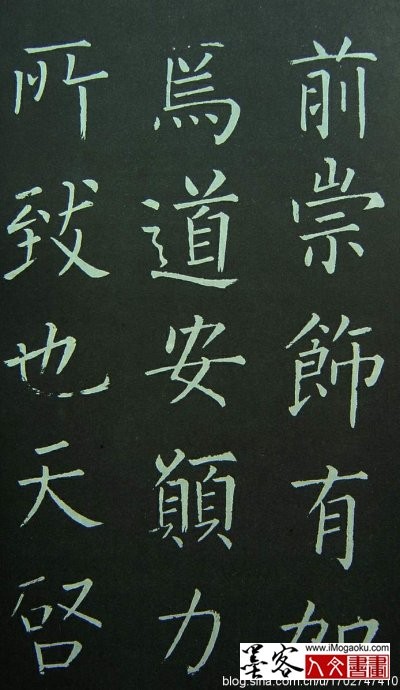 前崇飾有加
焉道安顛力
所致也天啓
www.iMogaoku.com
墨客
人文書畫
blog.sina.com.cn/u/1702747410